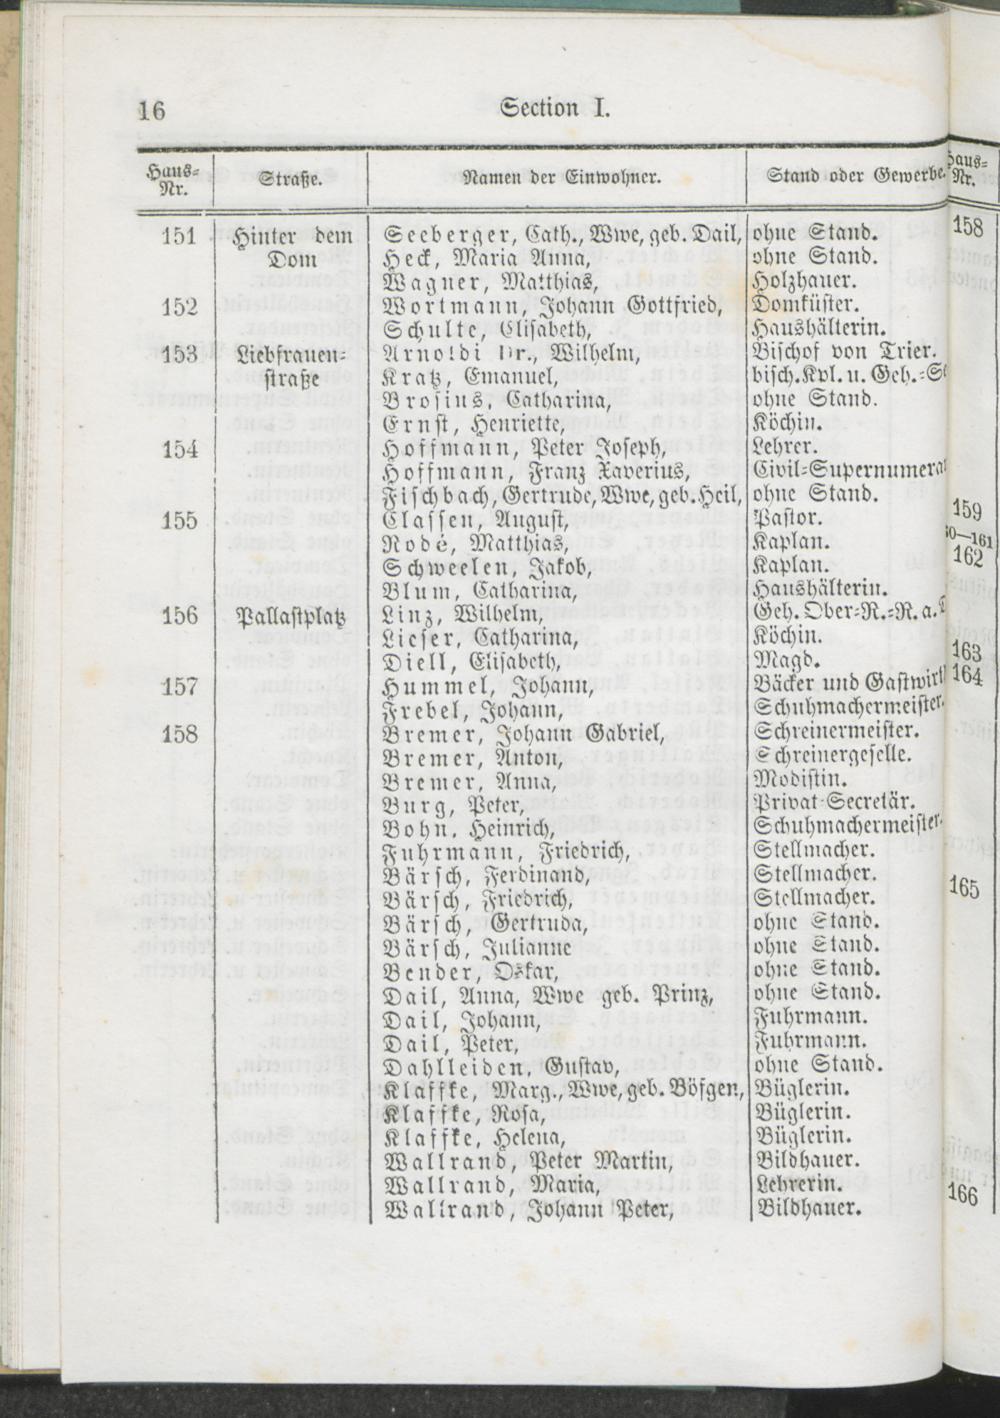 16 Section I.
Haus-Nr. Straße. Namen der Einwohner. Stand oder Gewerbe.
151 Hinter dem Seeberger, Cath., Wwe, geb. Dail, ohne Stand.
Dom Heck, Maria Anna, ohne Stand.
Wagner, Matthias, Holzhauer.
152 Wortmann, Johann Gottfried, Domküster.
Schulte, Elisabeth, Haushälterin.
153 Liebfrauen- Arnoldi Dr., Wilhelm, Bischof von Trier.
straße Kratz, Emanuel, bisch. Kpl. u. Geh.-Se
Brosius, Catharina, ohne Stand.
Ernst, Henriette, Köchin.
154 Hoffmann, Peter Joseph, Lehrer.
Hoffmann, Franz Xaverius, Civil-Supernumerar
Fischbach, Gertrude, Wwe, geb. Heil, ohne Stand.
155 Classen, August, Pastor.
Rodé, Matthias, Kaplan.
Schweelen, Jakob, Kaplan.
Blum, Catharina, Haushälterin.
156 Pallastplatz Linz, Wilhelm, Geh. Ober-R.-R. a. D
Lieser, Catharina, Köchin.
Diell, Elisabeth, Magd.
157 Hummel, Johann, Bäcker und Gastwirth
Frebel, Johann, Schuhmachermeister.
158 Bremer, Johann Gabriel, Schreinermeister.
Bremer, Anton, Schreinergeselle.
Bremer, Anna, Modistin.
Burg, Peter, Privat-Secretär.
Bohn, Heinrich, Schuhmachermeister.
Fuhrmann, Friedrich, Stellmacher.
Bärsch, Ferdinand, Stellmacher.
Bärsch, Friedrich, Stellmacher.
Bärsch, Gertruda, ohne Stand.
Bärsch, Julianne ohne Stand.
Bender, Oskar, ohne Stand.
Dail, Anna, Wwe geb. Prinz, ohne Stand.
Dail, Johann, Fuhrmann.
Dail, Peter, Fuhrmann.
Dahlleiden, Gustav, ohne Stand.
Klaffke, Marg., Wwe, geb. Bösgen, Büglerin.
Klaffke, Rosa, Büglerin.
Klaffke, Helena, Büglerin.
Wallrand, Peter Martin, Bildhauer.
Wallrand, Maria, Lehrerin.
Wallrand, Johann Peter, Bildhauer.
Haus-
Nr.
158
159
60—161
162
163
164
165
166